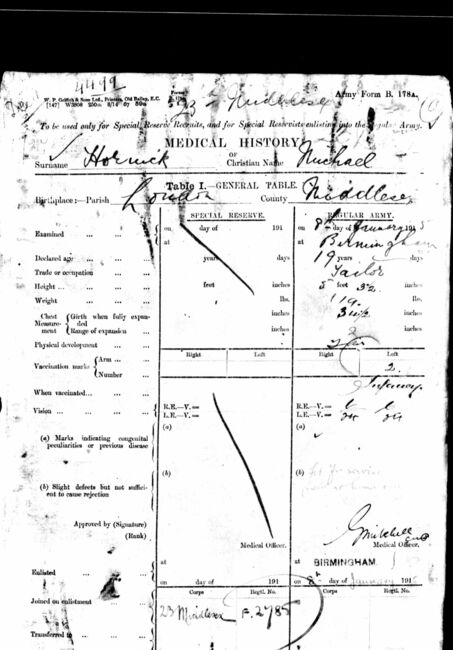 4499
W. P. Griffith & Sons Ltd., Printers, Old Bailey, E.C.
Forms
Army Form B. 178A.
23 Middlesex
To be used only for Special Reserve Recruits, and for Special Reservists enlisting into the Regular Army.
MEDICAL HISTORY
OF
Surname Christian Name Michael
Table I.—GENERAL TABLE.
Birthplace:—Parish London County Middlesex
SPECIAL RESERVE. REGULAR ARMY.
Examined ... ... on day of 191 on 8th day of January 191
at at Birmingham
Declared age ... ... years days 19 years days
Trade or occupation ... Tailor
Height ... ... feet inches 5 feet inches
Weight ... ... lbs. 119 lbs.
Chest Measurement { Girth when fully expanded inches inches
Range of expansion inches inches
Physical development ...
Right Left Right Left
Vaccination marks { Arm ...
Number 2
When vaccinated... ... Infancy
Vision ... ... R.E.—V.= R.E.—V.=
L.E.—V.= L.E.—V.=
(a) Marks indicating congenital peculiarities or previous disease (a) (a)
(b) Slight defects but not sufficient to cause rejection (b) (b)
Approved by (Signature) Mitchell
(Rank) Medical Officer. Medical Officer.
Enlisted ... ... at at BIRMINGHAM
on day of 191 on 8 day of January 191
Corps Regtl. No. Corps Regtl. No.
Joined on enlistment ... 23 Middlesex F.2785
Transferred to ...